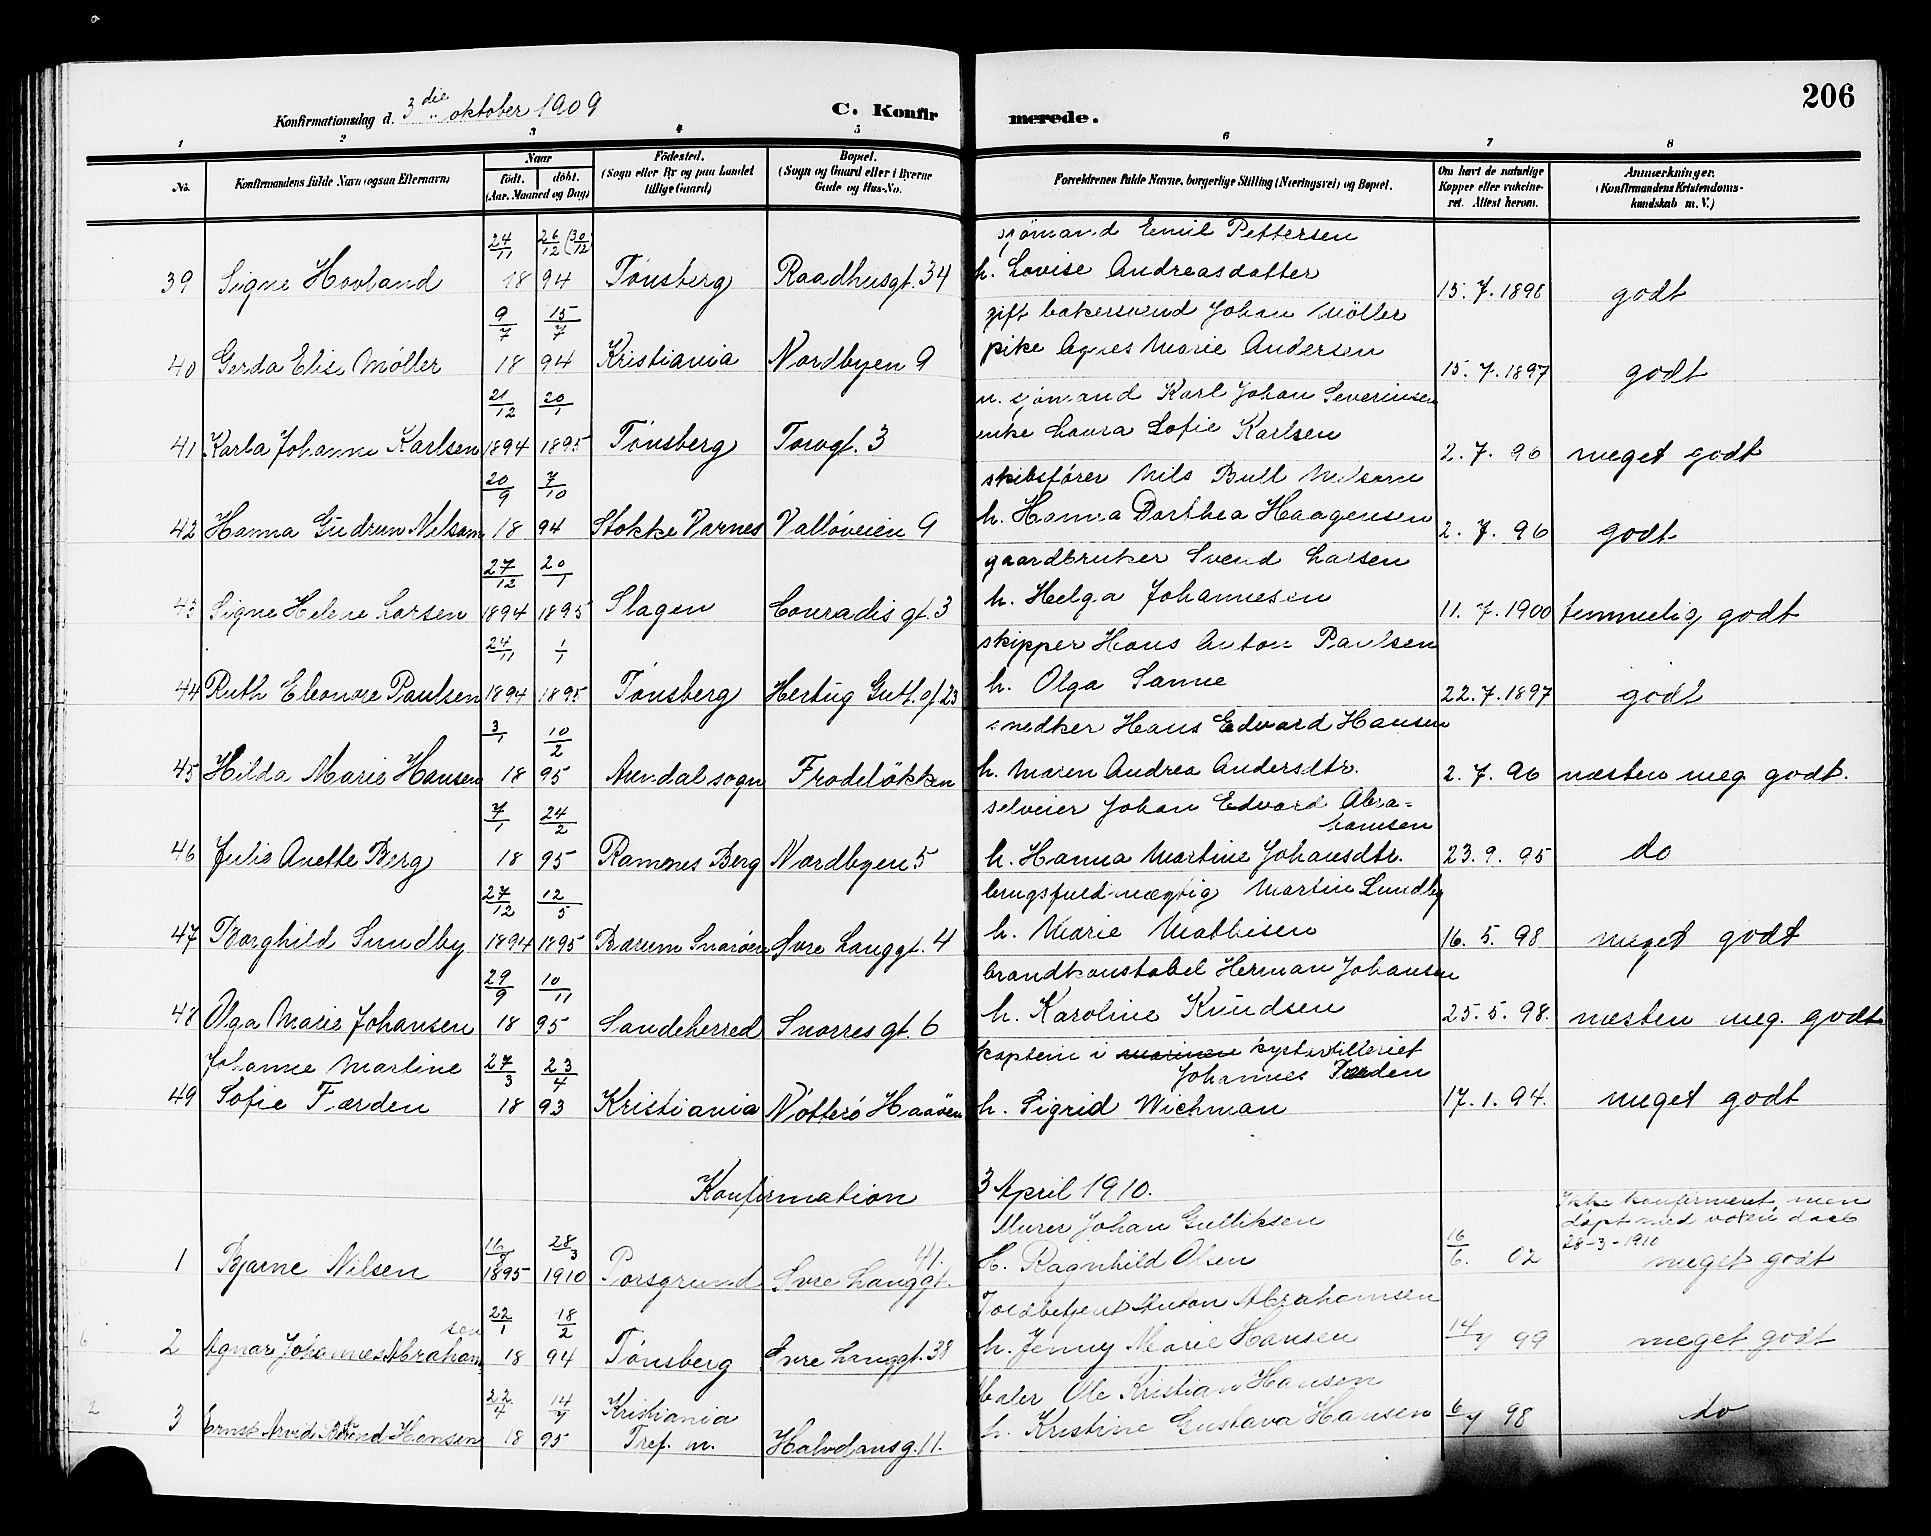 206
Konfirmationsdag d. 3die oktober 1909
C. Konfirmerede.
1 2 3 4 5 6 7 8
No. Konfirmandens fulde Navn (ogsaa Efternavn) Naar født. døbt. (Aar, Maaned og Dag) Födested. (Sogn eller By og paa Landet tillige Gaard) Bopæl. (Sogn og Gaard eller i Byerne Gade og Hus-No. Forældrenes fulde Navne, borgerlige Stilling (Næringsvei) og Bopæl. Om havt de naturlige Kopper eller vakcineret. Attest herom. Anmærkninger. (Konfirmandens Kristendomskundskab m. V.)
24/11 26/12 (30/12) sjömand Emil Pettersen
39 Signe Hovland 18 94 Tønsberg Raadhusgt. 34 h. Lovise Andreasdatter 15. 7. 1898 godt
9/7 15/7 gift bakersvend Johan Möller
40 Gerda Elise Møller 18 94 Kristiania Nordbyen 9 pike Agnes Marie Andersen 15. 7. 1897 godt
21/12 20/1 u. sjömand Karl Johan Severinsen
41 Karla Johanne Karlsen 1894 1895 Tønsberg Torvgt. 3 enke Laura Sofie Karlsen 2. 7. 96 meget godt
20/9 7/10 skibsfører Nils Bull Nilsom
42 Hanna Gudrun Nilsom 18 94 Stokke Varnes Valløveien 9 h. Hanna Dorthea Haagensen 2. 7. 96 godt
27/12 20/1 gaardbruker Svend Larsen
43 Signe Helene Larsen 1894 1895 Slagen Conradis gt. 3 h. Helga Johannesen 11. 7. 1900 temmelig godt
24/11 1/1 skipper Hans Anton Paulsen
44 Ruth Eleonore Paulsen 1894 1895 Tønsberg Hertug Gutt. gt. 23 h. Olga Sanne 22. 7. 1897 godt
3/1 10/2 snedker Hans Edvard Hansen
45 Hilda Marie Hansen 18 95 Arendal sogn Frodeløkken h. Maren Andrea Andersdtr. 2. 7. 96 næsten meg. godt.
7/1 24/2 selveier Johan Edvard Abra=
hamsen
46 Julie Anette Berg 18 95 Ramnes Berg Nordbyen 5 h. Hanna Martine Johansdtr. 23. 9. 95 do
27/12 12/5 brugsfuldmægtig Martin Sundby
47 Borghild Sundby 1894 1895 Bærum Snarøen Øvre Langgt. 4 h. Marie Mathisen 16. 5. 98 meget godt
29/9 10/11 brandkonstabel Herman Johansen
48 Olga Marie Johansen 18 95 Sandeherred Snorres gt. 6 h. Karoline Knudsen 25. 5. 98. næsten meg. godt
Johanne Martine 27/3 23/4 kaptein i marinen kystartilleriet
Johannes Færden
49 Sofie Færden 18 93 Kristiania Nøtterø Haaøen h. Sigrid Wichman 17. 1. 94. meget godt
Konfirmation 3 April 1910.
Ikke konfirmeret men
døpt med voxen daab
28-3-1910
28/3 Murer Johan Gulliksen
1 Bjarne Nilsen 1895 1910 Porsgrund Øvre Langgt. 41. H. Ragnhild Olsen 16/6. 02 meget godt
22/1 18/2 Toldbetjent Anton Abrahamsen
2 Agnar Johannes Abrahamsen 18 94 Tønsberg Øvre Langgt. 38 h. Jenny Marie Hansen 14/7 99 meget godt
22/4 14/7 Kristiania Maler Ole Kristian Hansen
3 Ernst Arvid Hansen 18 95 Tref. m. Halvdansg. 11. h. Kristine Gustava Hansen 6/7 98 do